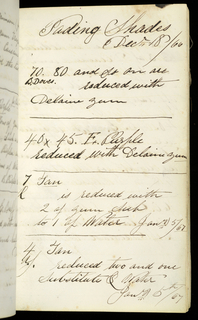 Fading Shades
6 Dec 18/60
70. 80 and so on are
& Doves. reduced with
Delaine gum
40x 45. Ex. Purple
reduced with Delaine gum
7 Tan
is reduced with
2 of gum Sub
to 1 of Water Jany 5/61
4 Tan
reduced two and one
Substitute & Water
Jany 5th/61